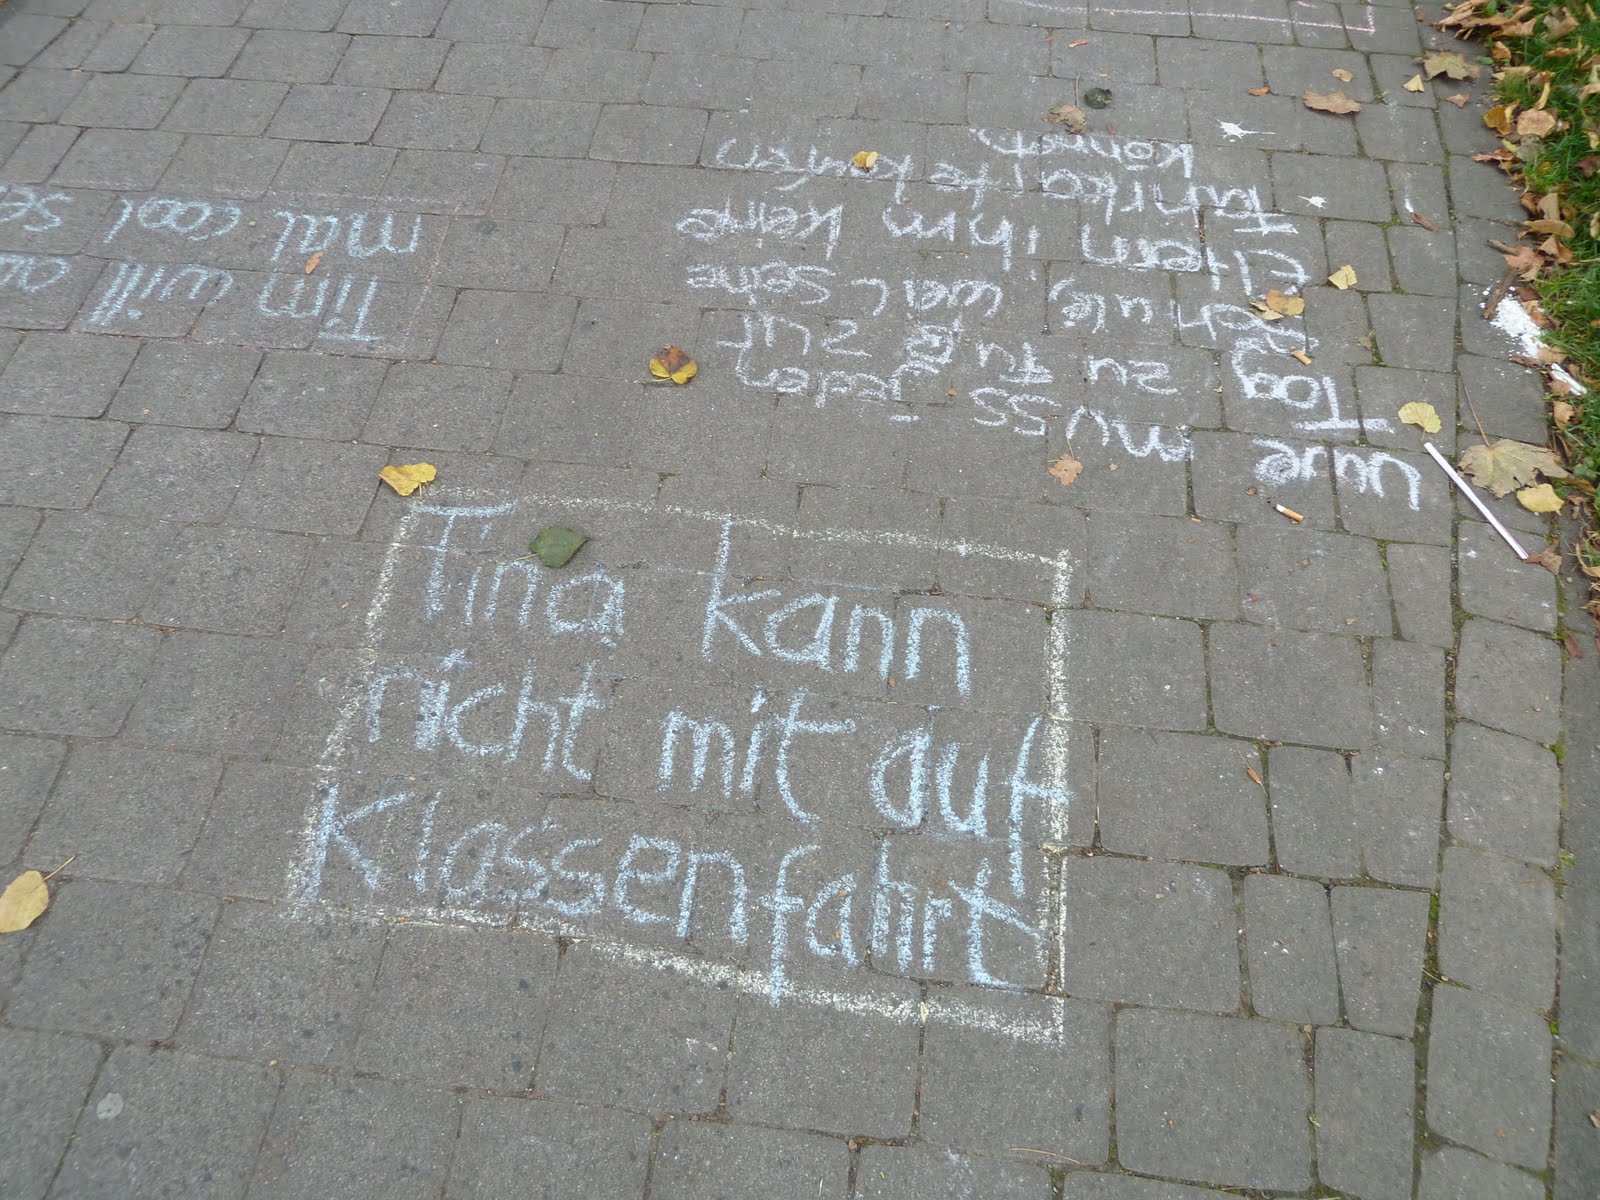 Tina kann
nicht mit auf
Klassenfahrt
Uwe muss jeden
Tag zu Fuß zur
Schule, weil seine
Eltern ihm keine
Fahrkarte kaufen
Tim will
mal cool